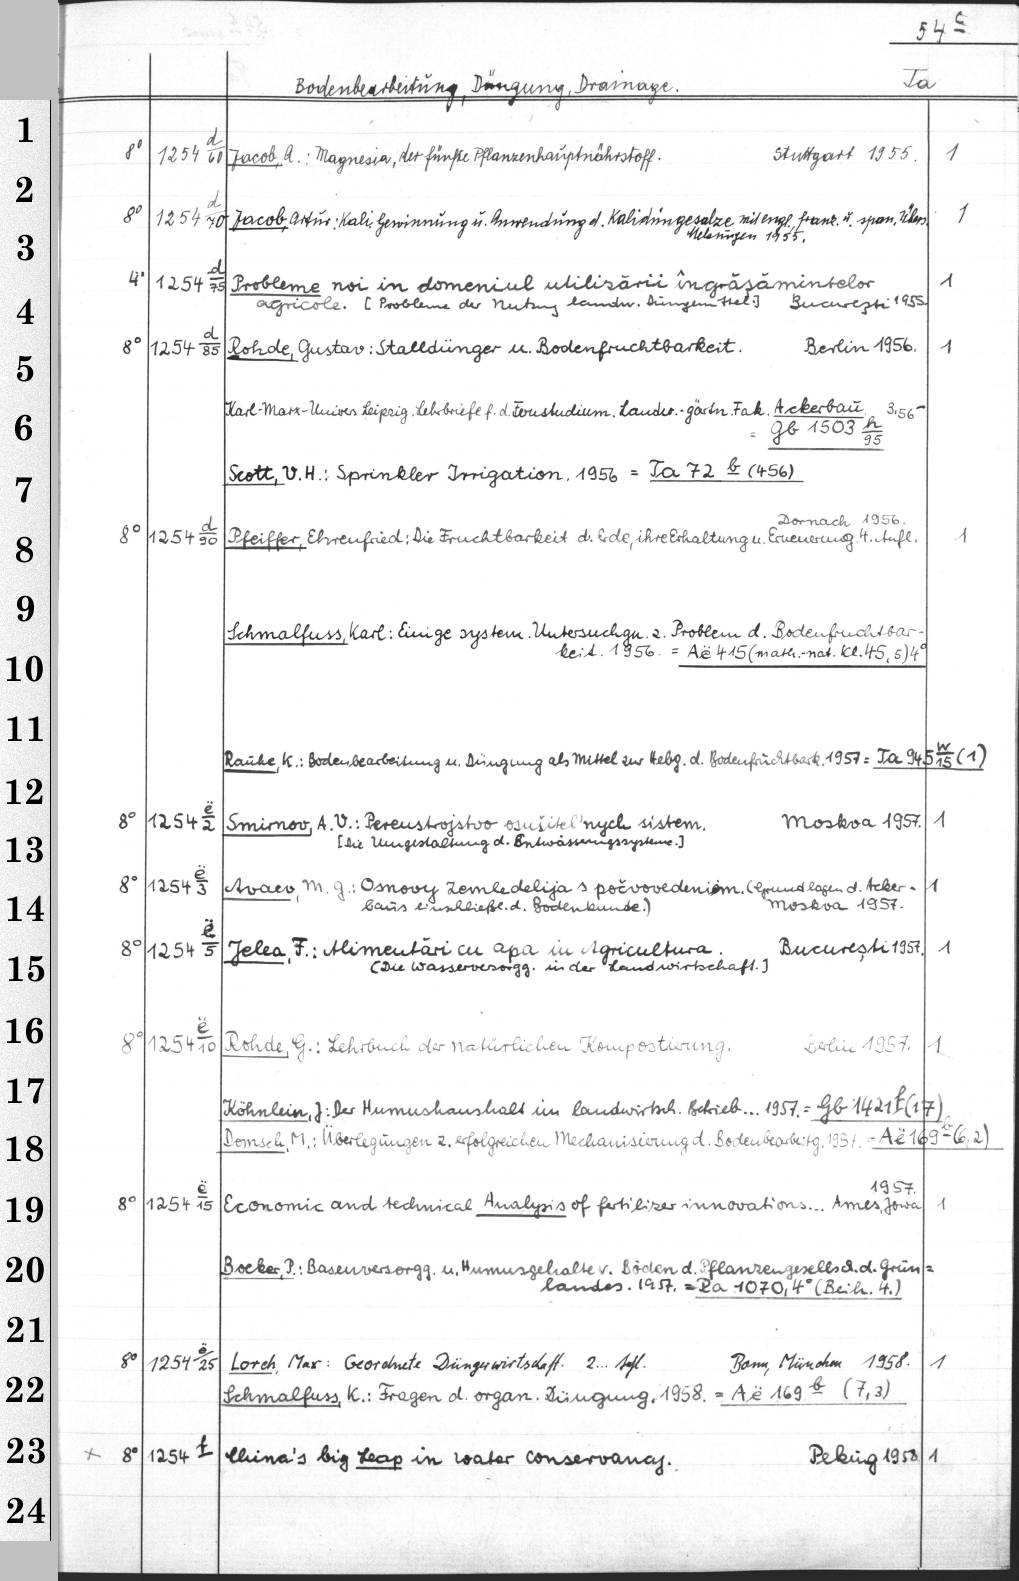 54 c
Bodenbearbeitung, Düngung, Drainage. Ta
1
8° 1254 d/60 Jacob, A.: Magnesia, der fünfte Pflanzenhauptnährstoff. Stuttgart 1955. 1
2
8° 1254 d/70 Jacob, Artur: Kali. Gewinnung u. Anwendung d. Kalidüngesalze mit engl., franz. u. span. 1
3
Melsungen 1955.
4° 1254 d/75 Probleme noi in domeniul utilizării îngrăşămintelor 1
4
agricole. [Probleme der Nutzung landw. Düngemittel] Bucureşti 1955
8° 1254 d/85 Rohde, Gustav: Stalldünger u. Bodenfruchtbarkeit. Berlin 1956. 1
5
Karl-Marx-Univers. Leipzig. Lehrbriefe f. d. Fernstudium. Landw.-gärtn. Fak. Ackerbau 3,56-
6
= Gb 1503 h/95
Scott, V.H.: Sprinkler Irrigation. 1956 = Ta 72 b (456)
7
Dornach 1956.
8° 1254 d/90 Pfeiffer, Ehrenfried: Die Fruchtbarkeit d. Erde, ihre Erhaltung u. Erneuerung. 4. Aufl. 1
8
9
Schmalfuss, Karl: Einige system. Untersuchgn. z. Problem d. Bodenfruchtbar-
keit. 1956. = Aë 415 (math.-nat. Kl. 45, 5) 4°
10
11
Rauhe, K.: Bodenbearbeitung u. Düngung als Mittel zur Hebg. d. Bodenfruchtbark. 1957 = Ta 945 w/15 (1)
12
8° 1254 ë/2 Smirnov, A.V.: Pereustrojstvo osušitel'nych sistem. Moskva 1957. 1
13
[Die Umgestaltung d. Entwässerungssysteme.]
8° 1254 ë/3 Avaev, M.G.: Osnovy zemledelija s počvovedeniem. (Grundlagen d. Acker- 1
14
baus einschließl. d. Bodenkunde.) Moskva 1957.
8° 1254 ë/5 Jelea, F.: Alimentări cu apa in Agricultura. Bucureşti 1957. 1
15
(Die Wasserversorgg. in der Landwirtschaft.)
16
8° 1254 ë/10 Rohde, G.: Lehrbuch der natürlichen Kompostierung. Berlin 1957. 1
17
Köhnlein, J: Der Humushaushalt im landwirtsch. Betrieb... 1957. = Gb 1421 f (17)
Domsch, M.: Überlegungen z. erfolgreichen Mechanisierung d. Bodenbearbeitg. 1957. = Aë 169 b (6,2)
18
1957.
8° 1254 ë/15 Economic and technical Analysis of fertilizer innovations... Ames, Jowa 1
19
Boeker, P.: Basenversorgg. u. Humusgehalte v. Böden d. Pflanzengesellsch. d. Grün=
20
landes. 1957. = Pa 1070, 4° (Beih. 4.)
21
8° 1254 ë/25 Lorch, Max: Geordnete Düngerwirtschaft. 2... Aufl. Bonn, München 1958. 1
22
Schmalfuss, K.: Fragen d. organ. Düngung. 1958. = Aë 169 b (7,3)
23
x 8° 1254 f China's big Leap in water conservancy. Peking 1958 1
24